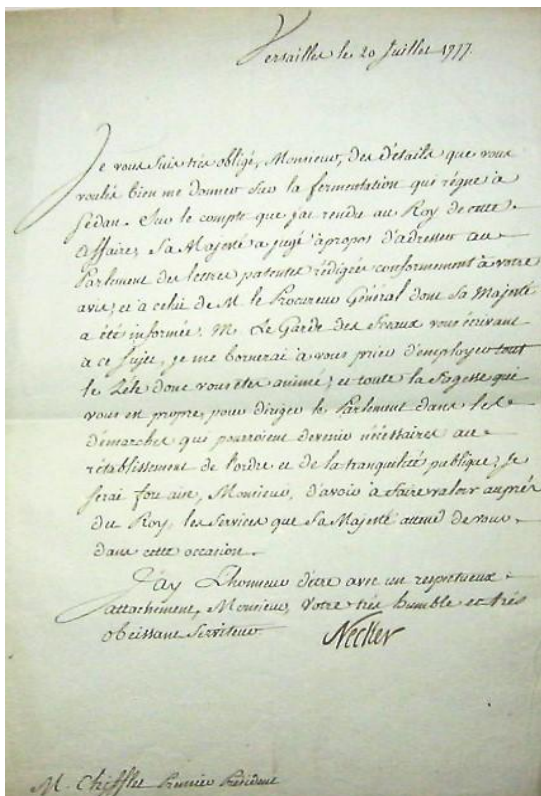 Versailles le 20 Juillet 1777.
Je vous suis très obligé, Monsieur, des détails que vous
voulés bien me donner sur la fermentation qui règne à
Sédan. Sur le compte que j'ai rendu au Roy de cette
affaire, Sa Majesté a jugé à propos d'adresser au
Parlement des lettres patentes rédigées conformément à votre
avis, et à celui de M. le Procureur Général dont Sa Majesté
a été informée. M. Le Garde des Sceaux vous écrivant
à ce sujet, je me bornerai à vous prier d'employer tout
le Zéle dont vous êtes animé, et toute la Sagesse qui
vous est propre, pour diriger le Parlement dans les
démarches que pourroient devenir nécessaires au
rétablissement de l'ordre et de la tranquilité publique; Je
serai fort aise, Monsieur, d'avoir à faire valoir auprès
du Roy, les services que Sa Majesté attend de vous
dans cette occasion.
J'ay L'honneur d'être avec un respectueux
attachement, Monsieur, Votre très humble et très
obéissant Serviteur
Necker
M. Chifflet Premier Président